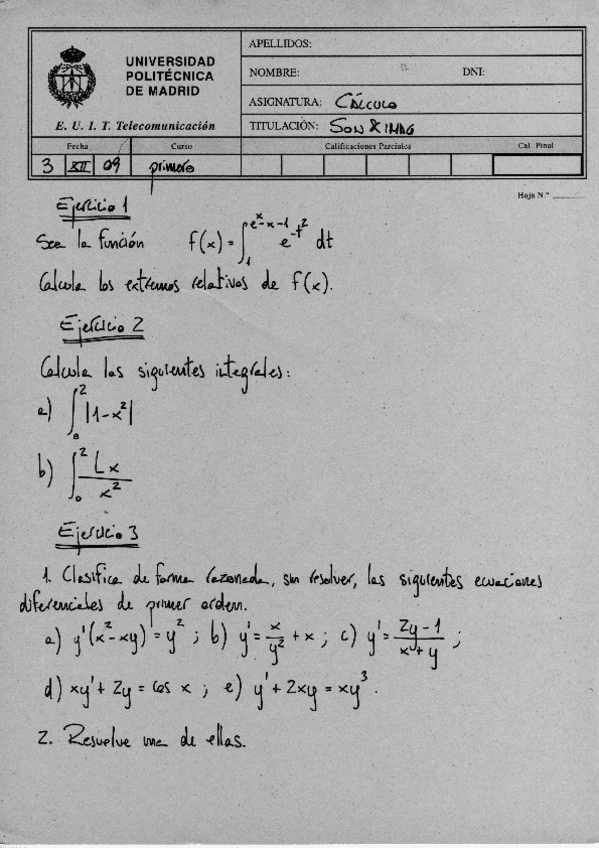 UNIVERSIDAD
POLITÉCNICA
DE MADRID
E. U. I. T. Telecomunicación
APELLIDOS:
NOMBRE: DNI:
ASIGNATURA: CÁLCULO
TITULACIÓN: SON E IMAG
Fecha Curso Calificaciones Parciales Cal. Final
3 XII 09 primero
Hoja N.º
Ejercicio 1
Sea la función f(x) = ∫₁^(e^x-x-1) e^(-t^2) dt
Calcula los extremos relativos de f(x).
Ejercicio 2
Calcula las siguientes integrales:
a) ∫₀² |1-x²|
b) ∫₀² Lx / x²
Ejercicio 3
1. Clasifica de forma razonada, sin resolver, las siguientes ecuaciones
diferenciales de primer orden.
a) y'(x²-xy) = y² ; b) y' = x/y² + x ; c) y' = 2y-1/x+y ;
d) xy' + 2y = cos x ; e) y' + 2xy = xy³.
2. Resuelve una de ellas.